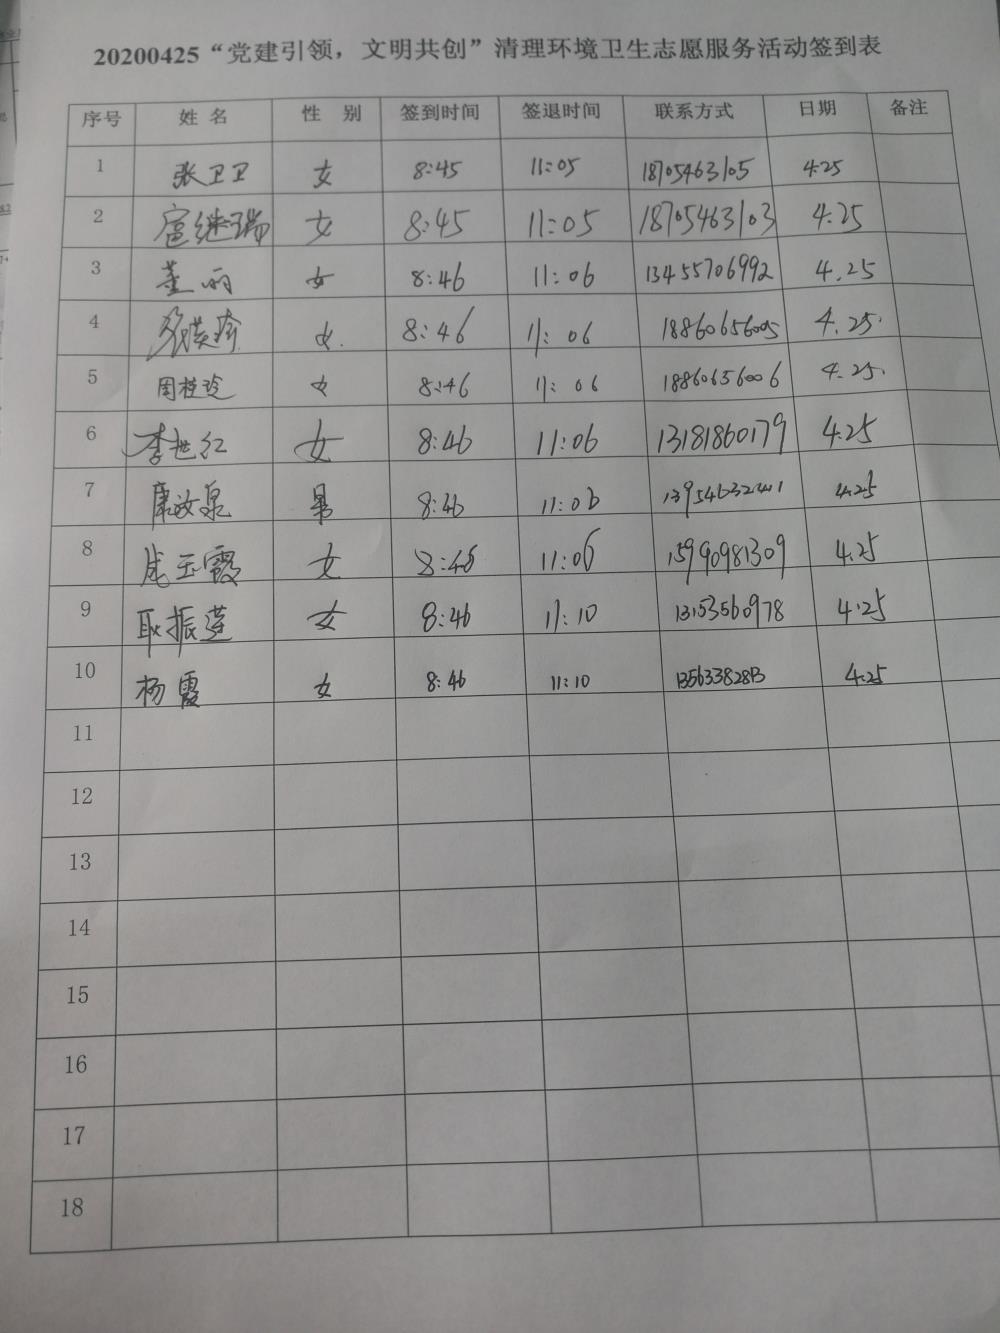 20200425“党建引领，文明共创”清理环境卫生志愿服务活动签到表
序号 姓名 性别 签到时间 签退时间 联系方式 日期 备注
1 张卫卫 女 8:45 11:05 18705463105 4.25
2 扈继瑞 女 8:45 11:05 18705463103 4.25
3 董丽 女 8:46 11:06 13455706992 4.25
4 女 8:46 11:06 18860656005 4.25
5 周桂玲 女 8:46 11:06 18860656006 4.25
6 李世红 女 8:46 11:06 13181860179 4.25
7 男 8:46 11:06 4.25
8 玉霞 女 8:46 11:06 15990981309 4.25
9 耿振莲 女 8:46 11:10 13153560978 4.25
10 杨霞 女 8:46 11:10 4.25
11
12
13
14
15
16
17
18